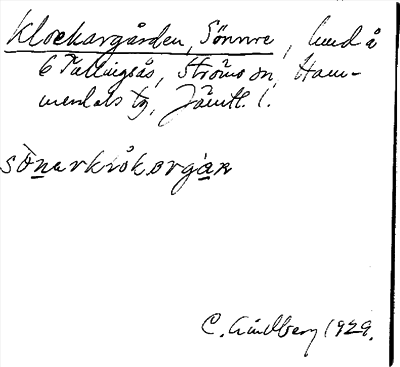 Klockargården, Sönnre, hmd å
6 Tullingsås, Ströms sn, Ham-
merdals tg, Jämtl. l.
sònarklòkargàṉ
C. Lindberg 1929.